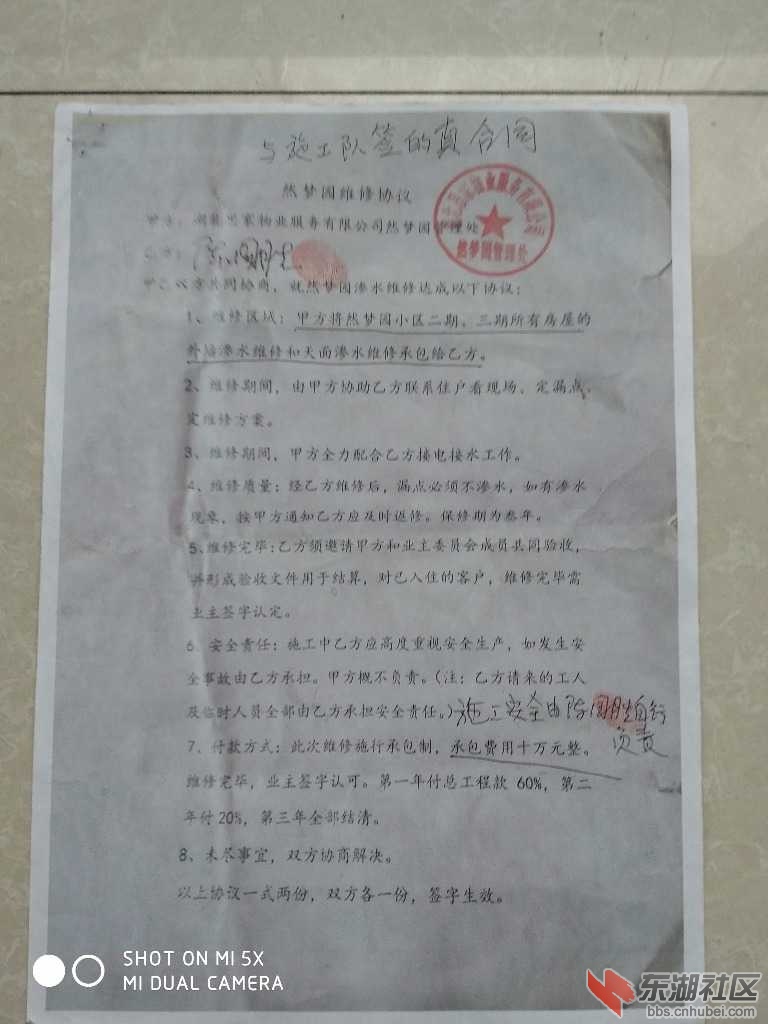 与施工队签的真合同
然梦园维修协议
甲方：湖北思家物业服务有限公司然梦园管理处
然梦园管理处
乙方：
甲乙双方共同协商，就然梦园渗水维修达成以下协议：
1、维修区域：甲方将然梦园小区二期、三期所有房屋的
外墙渗水维修和天面渗水维修承包给乙方。
2、维修期间，由甲方协助乙方联系住户看现场、定漏点、
定维修方案。
3、维修期间，甲方全力配合乙方接电接水工作。
4、维修质量：经乙方维修后，漏点必须不渗水，如有渗水
现象，按甲方通知乙方应及时返修。保修期为叁年。
5、维修完毕：乙方须邀请甲方和业主委员会成员共同验收，
并形成验收文件用于结算，对已入住的客户，维修完毕需
业主签字认定。
6、安全责任：施工中乙方应高度重视安全生产，如发生安
全事故由乙方承担。甲方概不负责。（注：乙方请来的工人
及临时人员全部由乙方承担安全责任。）施工安全由陈国胜自行
负责
7、付款方式：此次维修施行承包制，承包费用十万元整。
维修完毕，业主签字认可。第一年付总工程款 60%，第二
年付 20%，第三年全部结清。
8、未尽事宜，双方协商解决。
以上协议一式两份，双方各一份，签字生效。
SHOT ON MI 5X
MI DUAL CAMERA
东湖社区
bbs.cnhubei.com